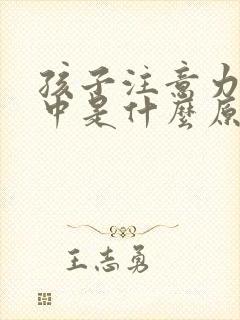 孩子注意力
中是什麼原
王志勇